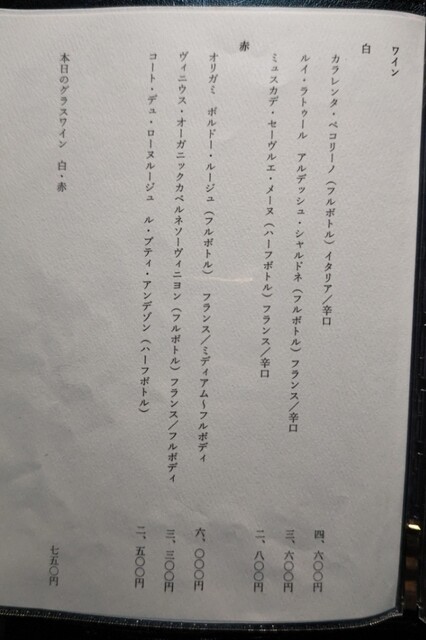 ワイン
白
カラレンタ・ペコリーノ（フルボトル）イタリア／辛口 四、六〇〇円
ルイ・ラトゥール アルデッシュ・シャルドネ（フルボトル）フランス／辛口 三、六〇〇円
ミュスカデ・セーヴルエ・メーヌ（ハーフボトル）フランス／辛口 二、八〇〇円
赤
オリガミ ボルドー・ルージュ（フルボトル） フランス／ミディアム～フルボディ 六、〇〇〇円
ヴィニウス・オーガニックカベルネソーヴィニヨン（フルボトル）フランス／フルボディ 三、三〇〇円
コート・デュ・ローヌルージュ ル・プティ・アンデゾン（ハーフボトル） 二、五〇〇円
本日のグラスワイン 白・赤 七五〇円